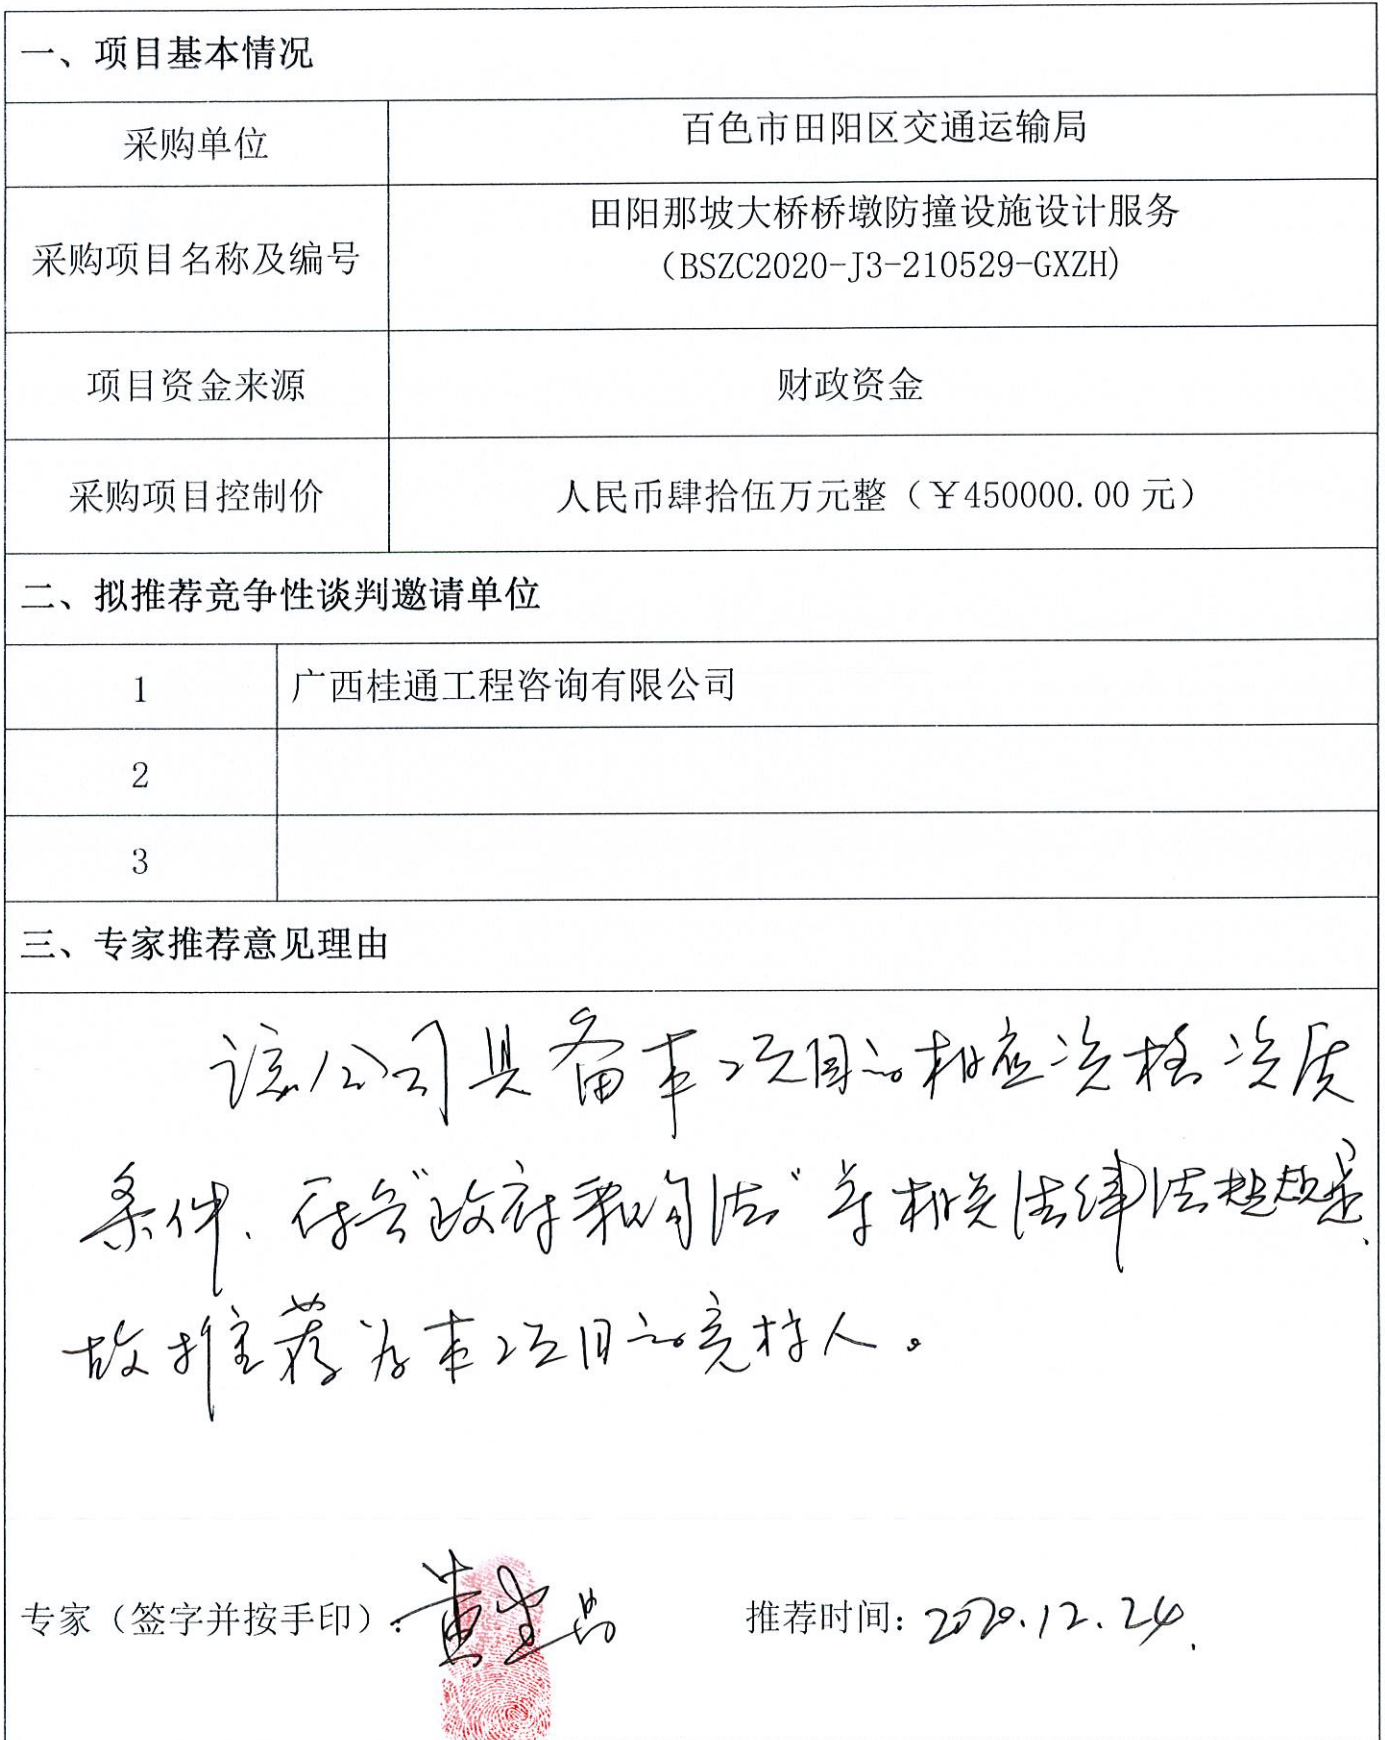 一、项目基本情况
采购单位
百色市田阳区交通运输局
采购项目名称及编号
田阳那坡大桥桥墩防撞设施设计服务
（BSZC2020-J3-210529-GXZH）
项目资金来源
财政资金
采购项目控制价
人民币肆拾伍万元整（￥450000.00 元）
二、拟推荐竞争性谈判邀请单位
1
广西桂通工程咨询有限公司
2
3
三、专家推荐意见理由
该公司具备本项目的相应资格资质
条件、符合“政府采购法”等相关法律法规规定、
故推荐为本项目的竞标人。
专家（签字并按手印）： 黄
推荐时间: 2020.12.24.